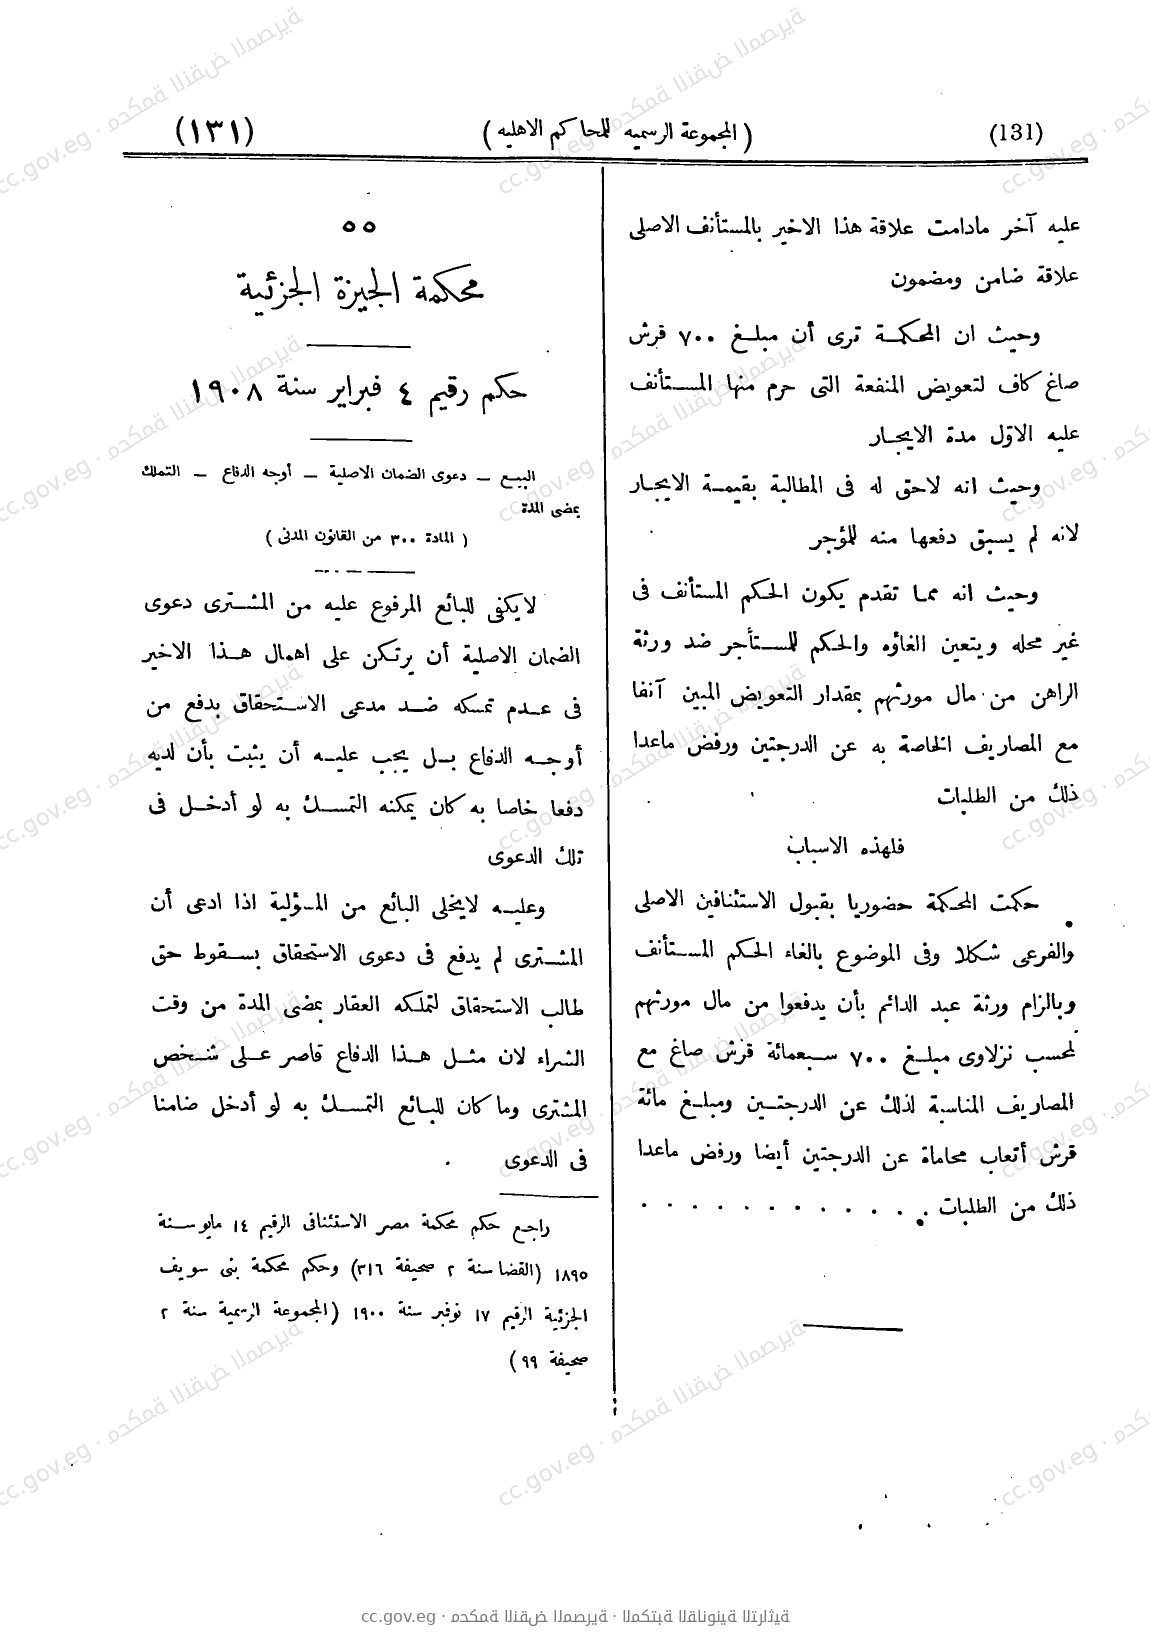 (131)
(المجموعة الرسمية للمحاكم الاهلية)
(١٣١)
عليه آخر مادامت علاقة هذا الاخير بالمستأنف الاصلى
علاقة ضامن ومضمون
وحيث ان المحكمة ترى أن مبلغ ٧٠٠ قرش
صاغ كاف لتعويض المنفعة التى حرم منها المستأنف
عليه الاوّل مدة الايجار
وحيث انه لاحق له فى المطالبة بقيمة الايجار
لانه لم يسبق دفعها منه للمؤجر
وحيث انه مما تقدم يكون الحكم المستأنف فى
غير محله ويتعين الغاؤه والحكم للمستأجر ضد ورثة
الراهن من مال مورثهم بمقدار التعويض المبين آنفا
مع المصاريف الخاصة به عن الدرجتين ورفض ماعدا
ذلك من الطلبات
فلهذه الاسباب
حكمت المحكمة حضوريا بقبول الاستئنافين الاصلى
والفرعى شكلا وفى الموضوع بالغاء الحكم المستأنف
وبالزام ورثة عبد الدائم بأن يدفعوا من مال مورثهم
لمحسب نزلاوى مبلغ ٧٠٠ سبعمائة قرش صاغ مع
المصاريف المناسبة لذلك عن الدرجتين ومبلغ مائة
قرش أتعاب محاماة عن الدرجتين أيضا ورفض ماعدا
ذلك من الطلبات . . . . . . . . . . . .
٥٥
محكمة الجيزة الجزئية
حكم رقيم ٤ فبراير سنة ١٩٠٨
البيع – دعوى الضمان الاصلية – أوجه الدفاع – التملك
بمضى المدة
( المادة ٣٠٠ من القانون المدنى )
لايكفى للبائع المرفوع عليه من المشترى دعوى
الضمان الاصلية أن يرتكن على اهمال هذا الاخير
فى عدم تمسكه ضد مدعى الاستحقاق بدفع من
أوجه الدفاع بل يجب عليه أن يثبت بأن لديه
دفعا خاصا به كان يمكنه التمسك به لو أدخل فى
تلك الدعوى
وعليه لايخلى البائع من المسؤلية اذا ادعى أن
المشترى لم يدفع فى دعوى الاستحقاق بسقوط حق
طالب الاستحقاق لتملكه العقار بمضى المدة من وقت
الشراء لان مثل هذا الدفاع قاصر على شخص
المشترى وما كان للبائع التمسك به لو أدخل ضامنا
فى الدعوى .
راجع حكم محكمة مصر الاستئنافى الرقيم ١٤ مايو سنة
١٨٩٥ (القضا سنة ٢ صحيفة ٣١٦) وحكم محكمة بنى سويف
الجزئية الرقيم ١٧ نوفبر سنة ١٩٠٠ (المجموعة الرسمية سنة ٢
صحيفة ٩٩)
cc.gov.eg · محكمة النقض المصرية · المكتبة القانونية التراثية